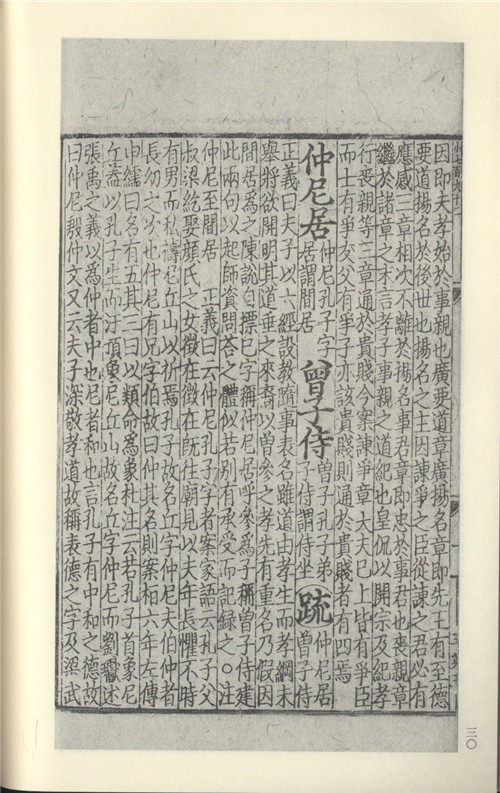 因即夫孝始於事親也廣要道章廣揚名章即先王有至德
要道揚名於後世也揚名之主因諫爭之臣從諫之君必有
應感三章相次不離於揚名事君章即忠於事君也喪親章
繼於諸章之末言孝子事親之道紀也皇侃以開宗及紀孝
行喪親等三章通於貴賤今案諫爭章大夫巳上皆有爭臣
而士有爭友父有爭子亦該貴賤則通於貴賤者有四焉
仲尼居 仲尼孔子字居謂間居 曾子侍 曾子孔子弟子侍謂侍坐 疏 仲尼居曾子侍
正義曰夫子以六經設教隨事表名雖道由孝生而孝綱未
舉將欲開明其道垂之來裔以曾參之孝先有重名乃假因
間居爲之陳說自摽巳字稱仲尼居呼參爲子稱曾子侍建
此兩句以起師資問荅之體似若別有承受而記録之○注
仲尼至間居　正義曰云仲尼孔子字者案家語云孔子父
叔梁紇娶顏氏之女徵在徵在既往廟見以夫年長懼不時
有男而私禱尼丘山以祈焉孔子故名丘字仲尼夫伯仲者
長幼之次也仲尼有兄字伯故曰仲其名則案桓六年左傳
申繻曰名有五其三曰以類命爲象杜注云若孔子首象尼
丘蓋以孔子生而汙頂象尼丘山故名丘字仲尼而劉瓛述
張禹之義以爲仲者中也尼者和也言孔子有中和之德故
曰仲尼殷仲文又云夫子深敬孝道故稱表德之字及梁武
三〇